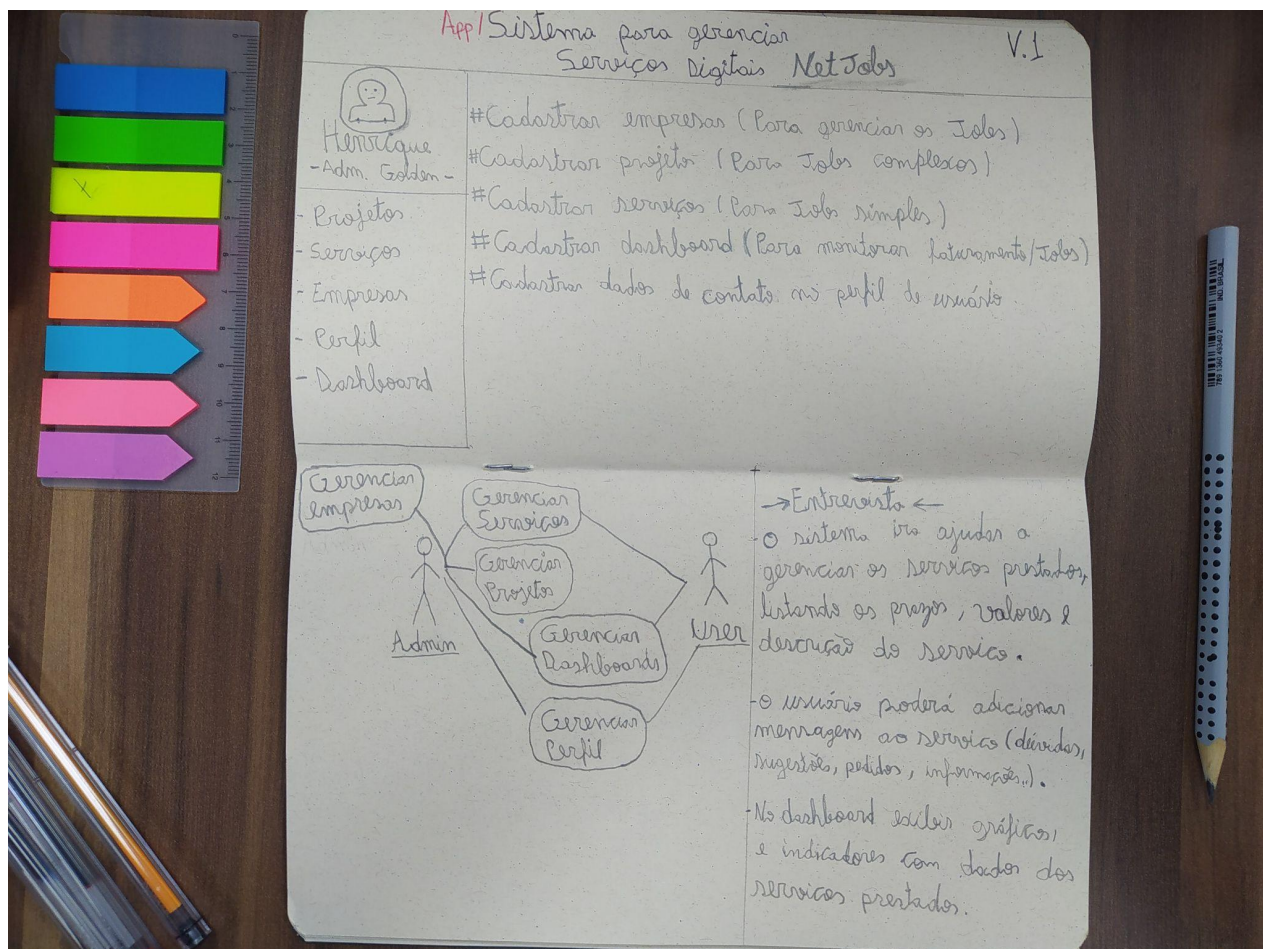 App/Sistema para gerenciar
Serviços Digitais NetJobs
V.1
Henrique
-Adm. Golden-
- Projetos
- Serviços
- Empresas
- Perfil
- Dashboard
#Cadastrar empresas (Para gerenciar os Jobs)
#Cadastrar projeto (Para Jobs complexos)
#Cadastrar serviços (Para Jobs simples)
#Cadastrar dashboard (Para monitorar faturamento/Jobs)
#Cadastrar dados de contato no perfil de usuário.
Gerenciar
empresas
Gerenciar
Serviços
Gerenciar
Projetos
Gerenciar
Dashboards
Gerenciar
Perfil
Admin
User
→Entrevista←
-O sistema ira ajudar a
gerenciar os serviços prestados,
listando os prazos, valores e
descrição do serviço.
-O usuário poderá adicionar
mensagem ao serviço (dúvidas,
sugestões, pedidos, informações..).
-No dashboard exibir gráficos,
e indicadores com dados dos
serviços prestados.
789 1360 493402
IND. BRASIL
0
1
2
3
4
5
6
7
8
9
10
11
12